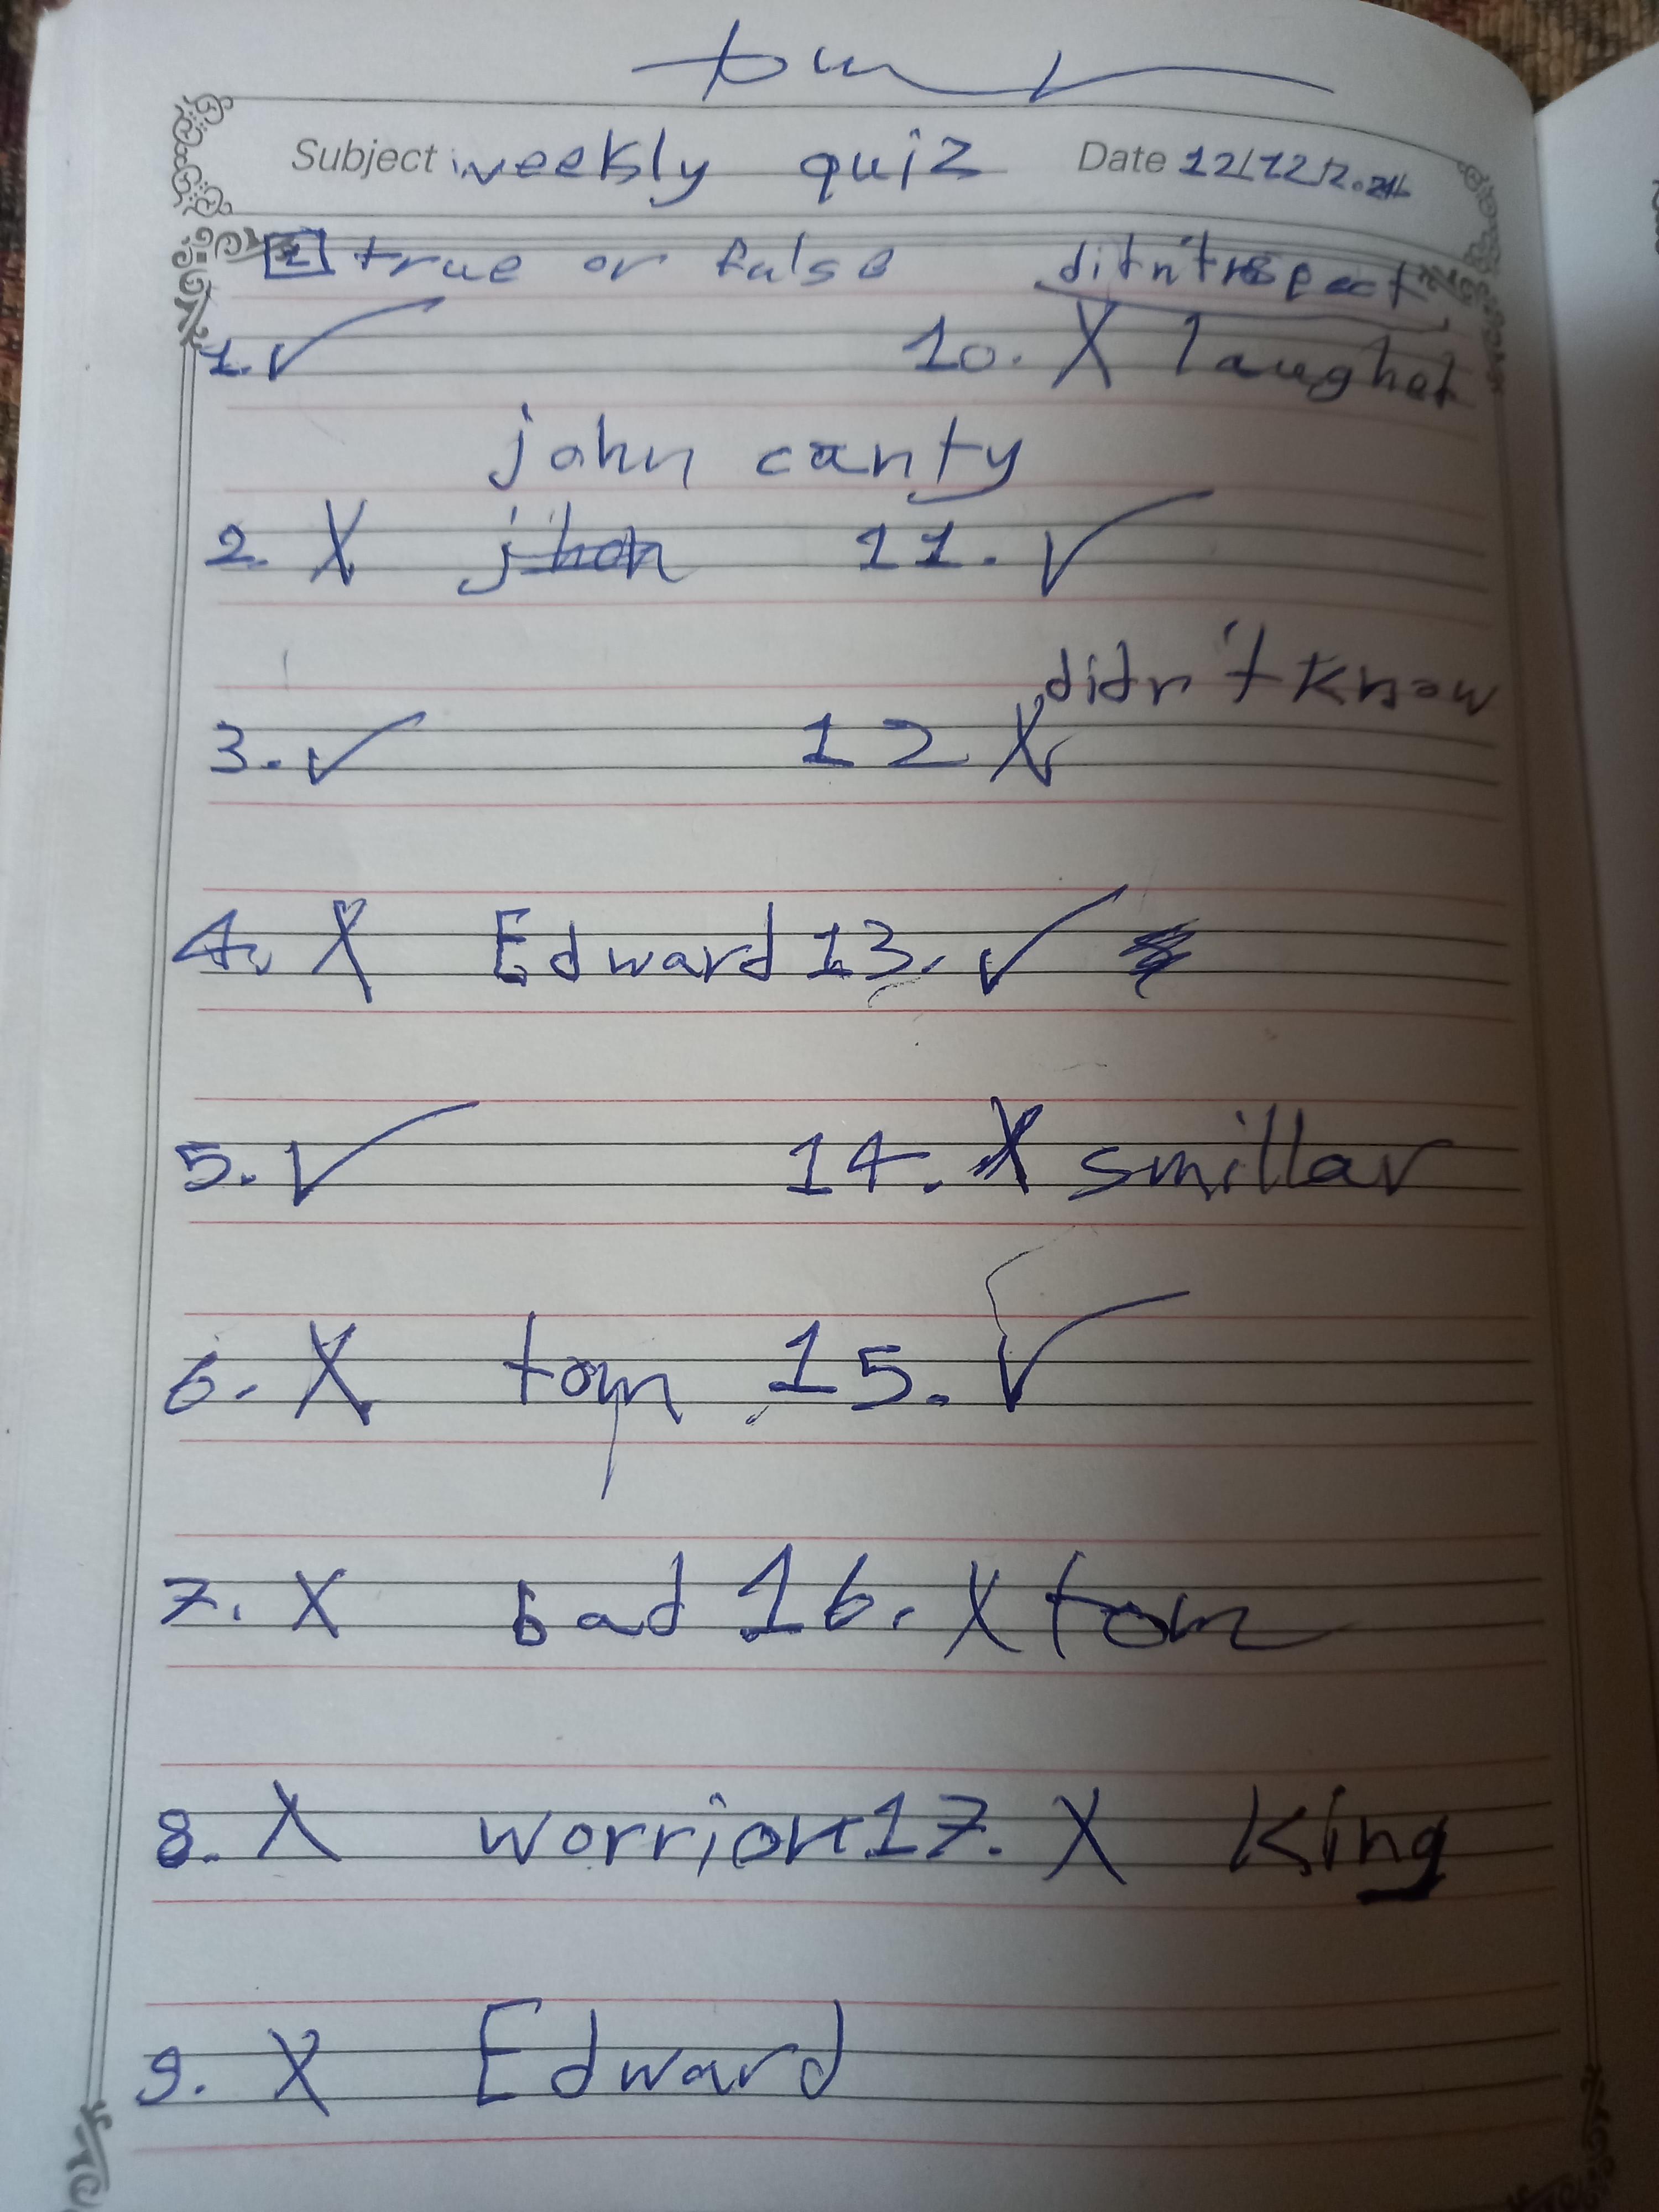 Subject weekly quiz Date 12/12/2.24
1 true or false ditn't respect
1. ✓ 10. X laughet
john canty
2. X jhon 11. ✓
didn't know
3. ✓ 12 X
4. X Edward 13. ✓
5. ✓ 14. X smillar
6. X tom 15. ✓
7. X bad 16. X tom
8. X worrion 17. X King
9. X Edward